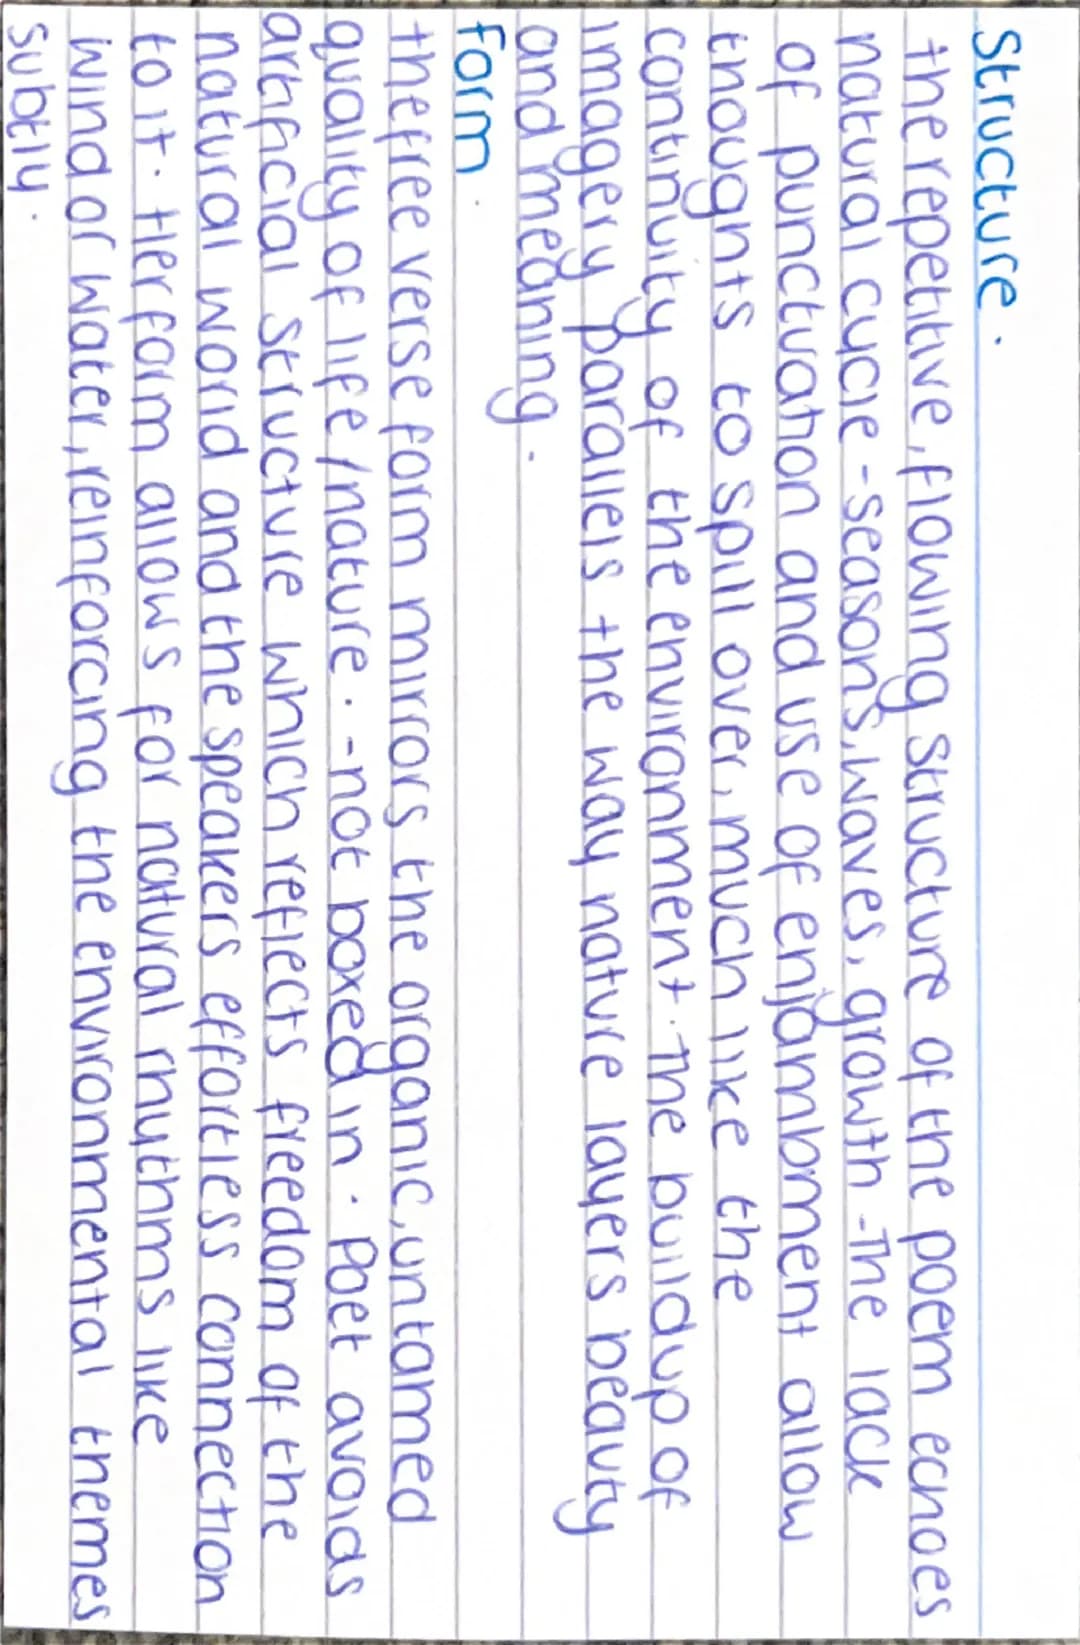 Structure.
the repetitive, flowing structure of the poem echoes
natural cycle - seasons, waves, growth - The lack
of punctuation and use of enjambment allow
thoughts to spill over, much like the
continuity of the environment. The buildup of
imagery parallels the way nature layers beauty
and meaning.
Form.
the free verse form mirrors the organic, untamed
quality of life/nature. - not boxed in. Poet avoids
artificial structure which reflects freedom of the
natural world and the speakers effortless connection
to it. Her form allows for natural rhythms like
wind or water, reinforcing the environmental themes
subtly.